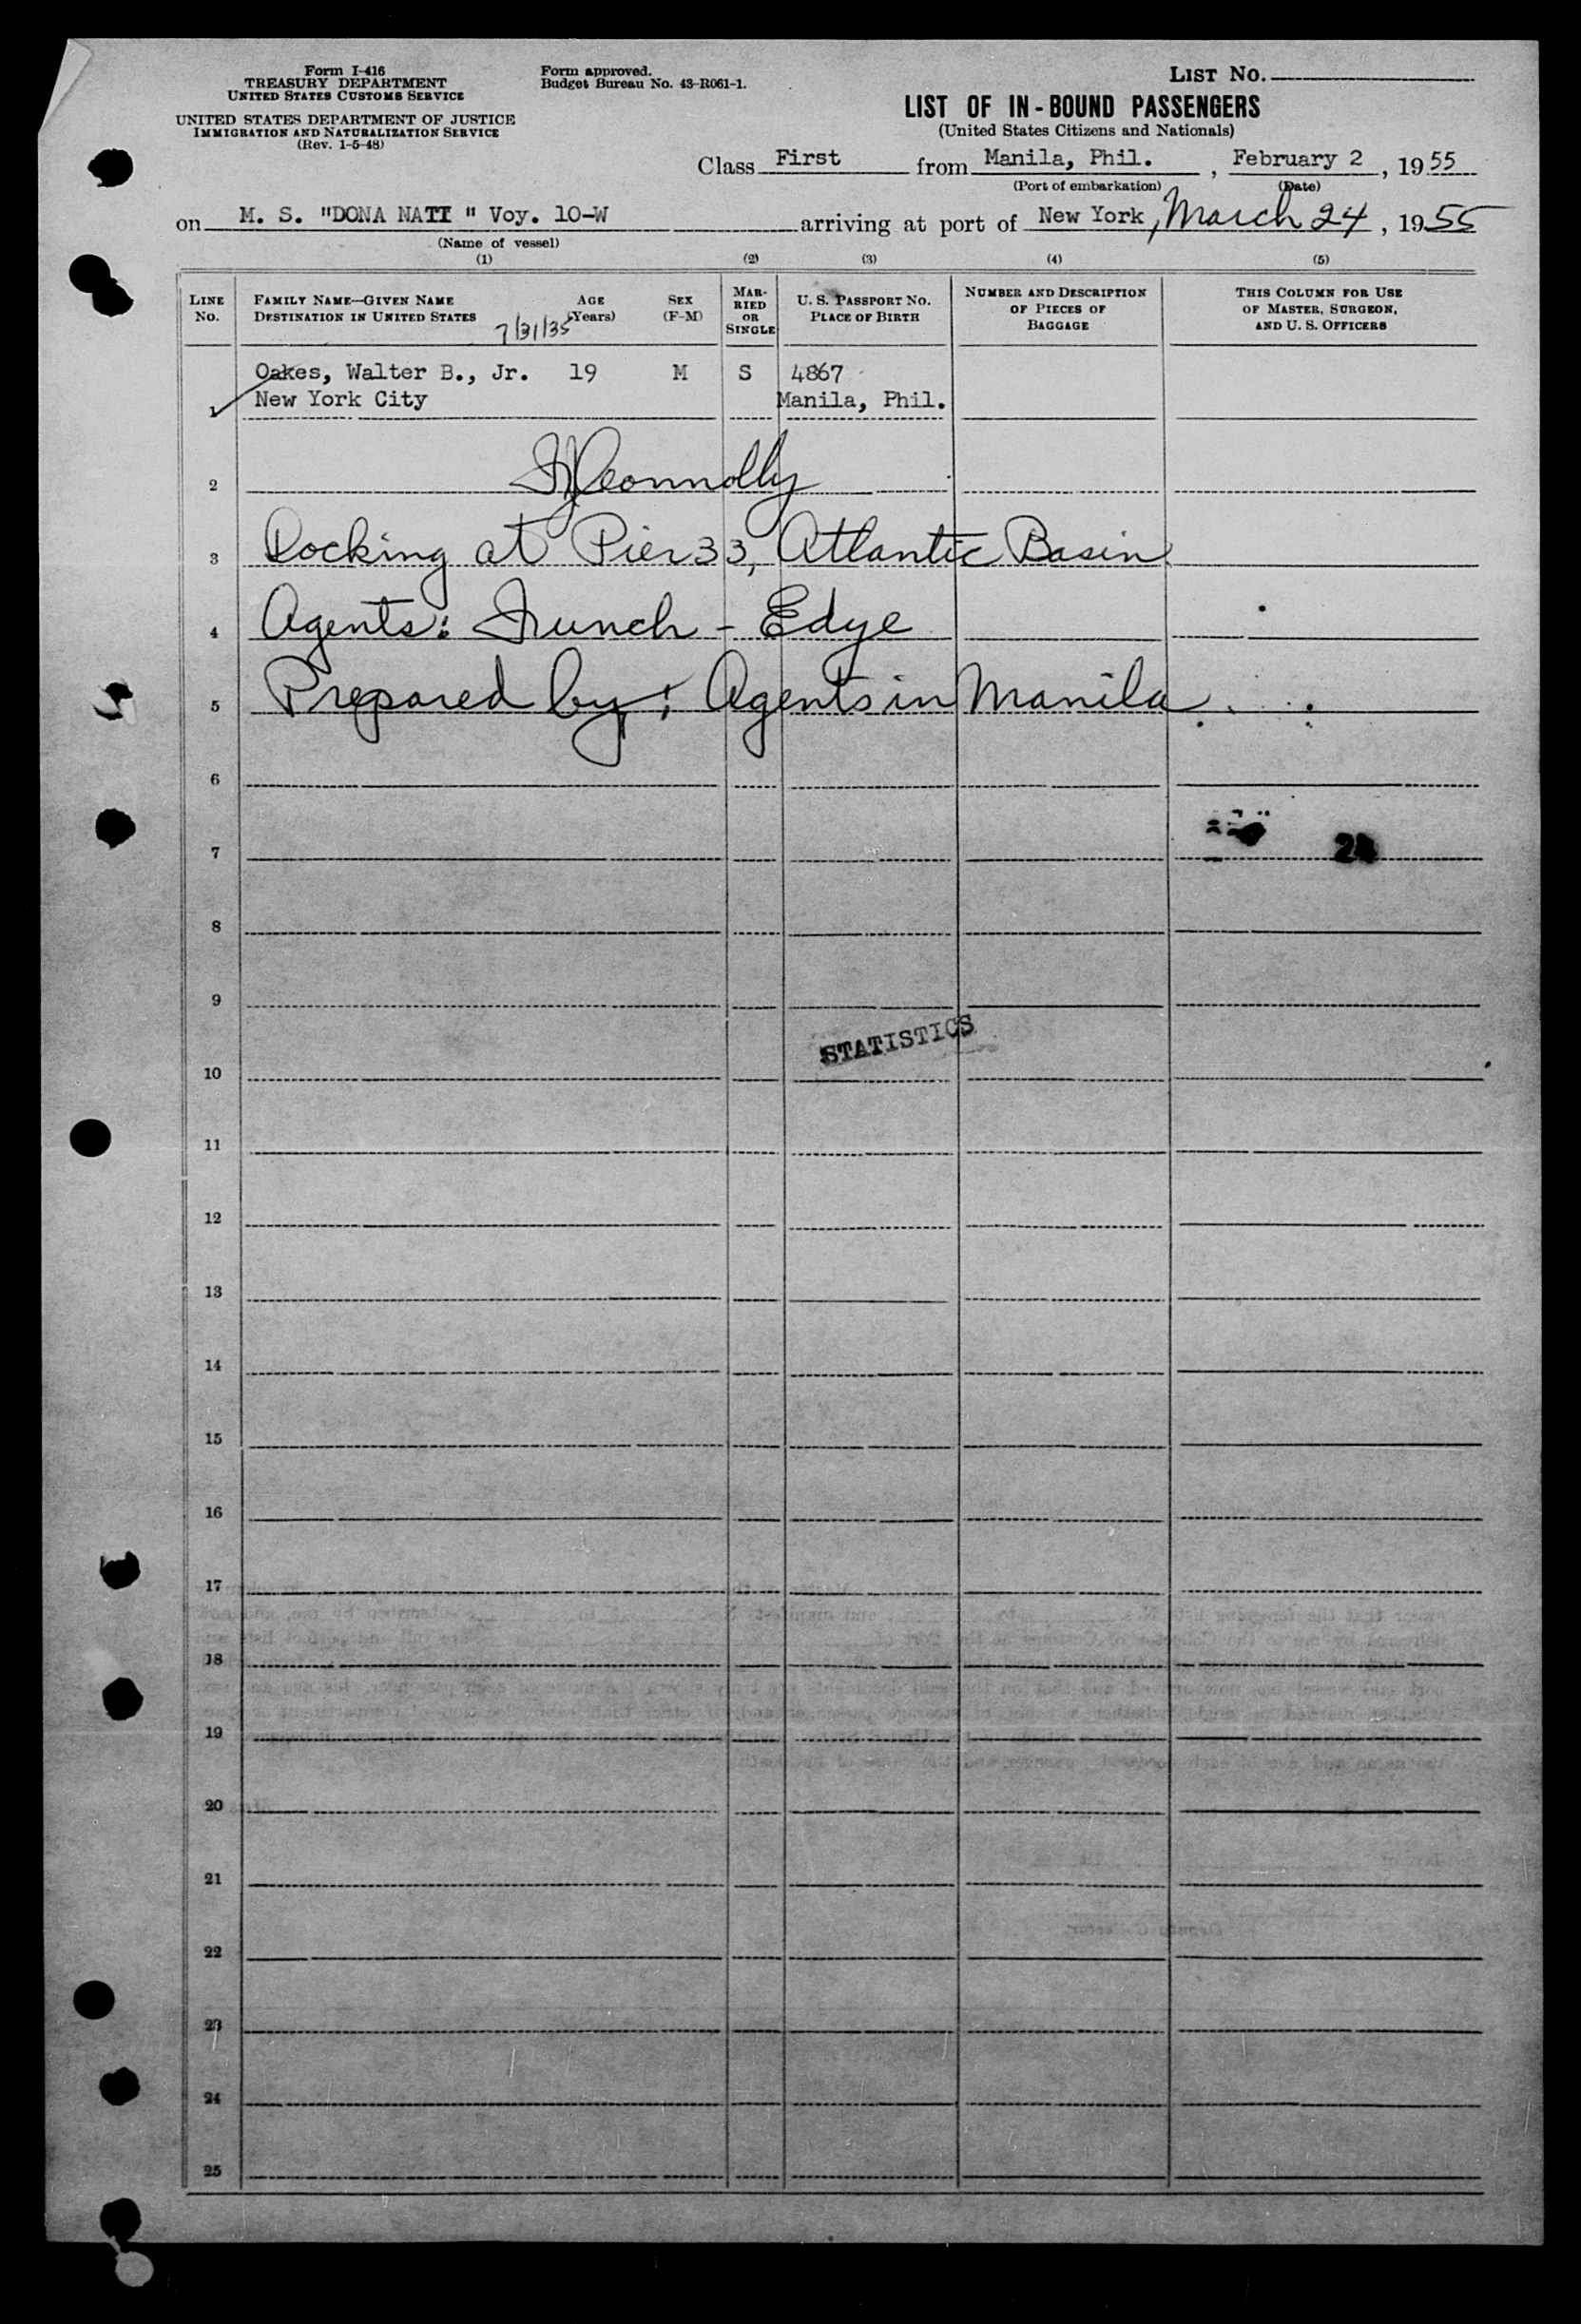 Form I-416
TREASURY DEPARTMENT
UNITED STATES CUSTOMS SERVICE
UNITED STATES DEPARTMENT OF JUSTICE
IMMIGRATION AND NATURALIZATION SERVICE
(Rev. 1-5-48)
Form approved.
Budget Bureau No. 43-R061-1.
LIST No.
LIST OF IN-BOUND PASSENGERS
(United States Citizens and Nationals)
Class First from Manila, Phil. , February 2 , 1955
(Port of embarkation) (Date)
on M. S. "DONA NATI " Voy. 10-W arriving at port of New York, March 24, 1955
(Name of vessel)
(1) (2) (3) (4) (5)
LINE No.
FAMILY NAME—GIVEN NAME
DESTINATION IN UNITED STATES
AGE (Years)
7/31/35
SEX (F-M)
MARRIED OR SINGLE
U. S. PASSPORT No.
PLACE OF BIRTH
NUMBER AND DESCRIPTION OF PIECES OF BAGGAGE
THIS COLUMN FOR USE OF MASTER, SURGEON, AND U. S. OFFICERS
Oakes, Walter B., Jr. 19 M S 4867
1 New York City Manila, Phil.
2 Connolly
3 Docking at Pier 33, Atlantic Basin
4 Agents: Funch - Edye
5 Prepared by: Agents in Manila
6
7 24
8
9
STATISTICS
10
11
12
13
14
15
16
17
18
19
20
21
22
23
24
25